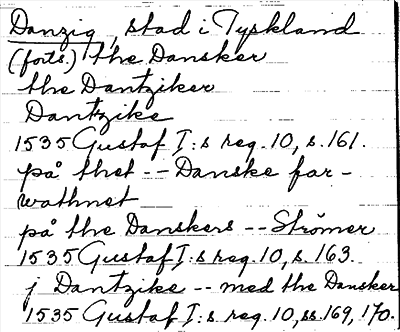 Danzig, stad i Tyskland
(forts.) the Dansker
the Dantziker
Dantzike
1535 Gustaf I:s reg. 10, s. 161.
på thet -- Danske far-
wathnet
på the Danskers -- Strömer
1535 Gustaf I:s reg. 10, s. 163.
j Dantzike -- med the Dansker
1535 Gustaf I:s reg. 10, ss. 169, 170.